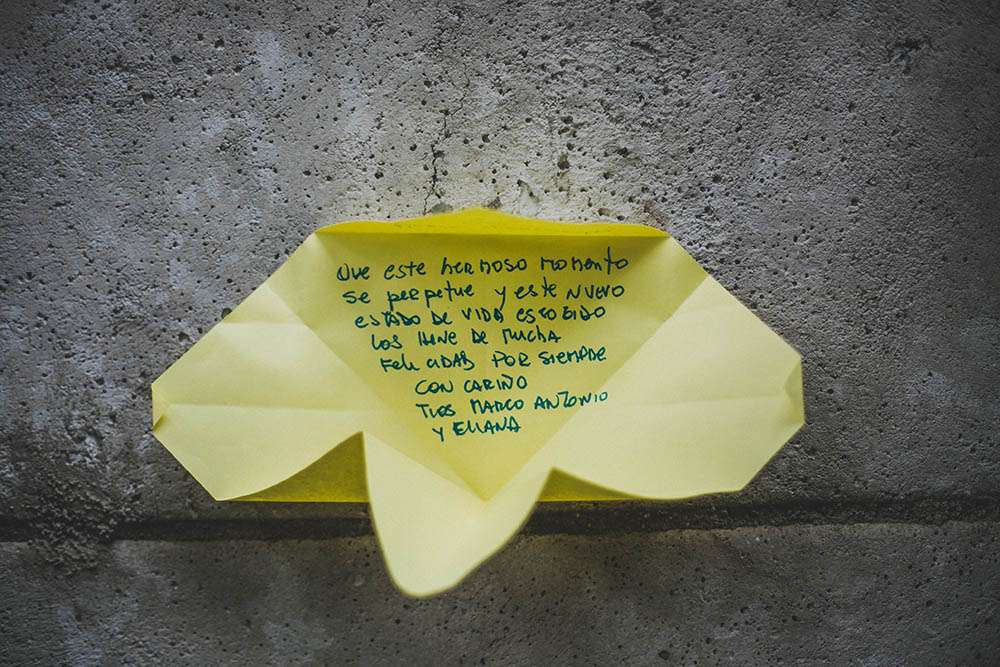 Que este hermoso momento
se perpetue y este nuevo
estado de vida escogido
los llene de mucha
felicidad por siempre
con cariño
Tios Marco Antonio
y Eliana